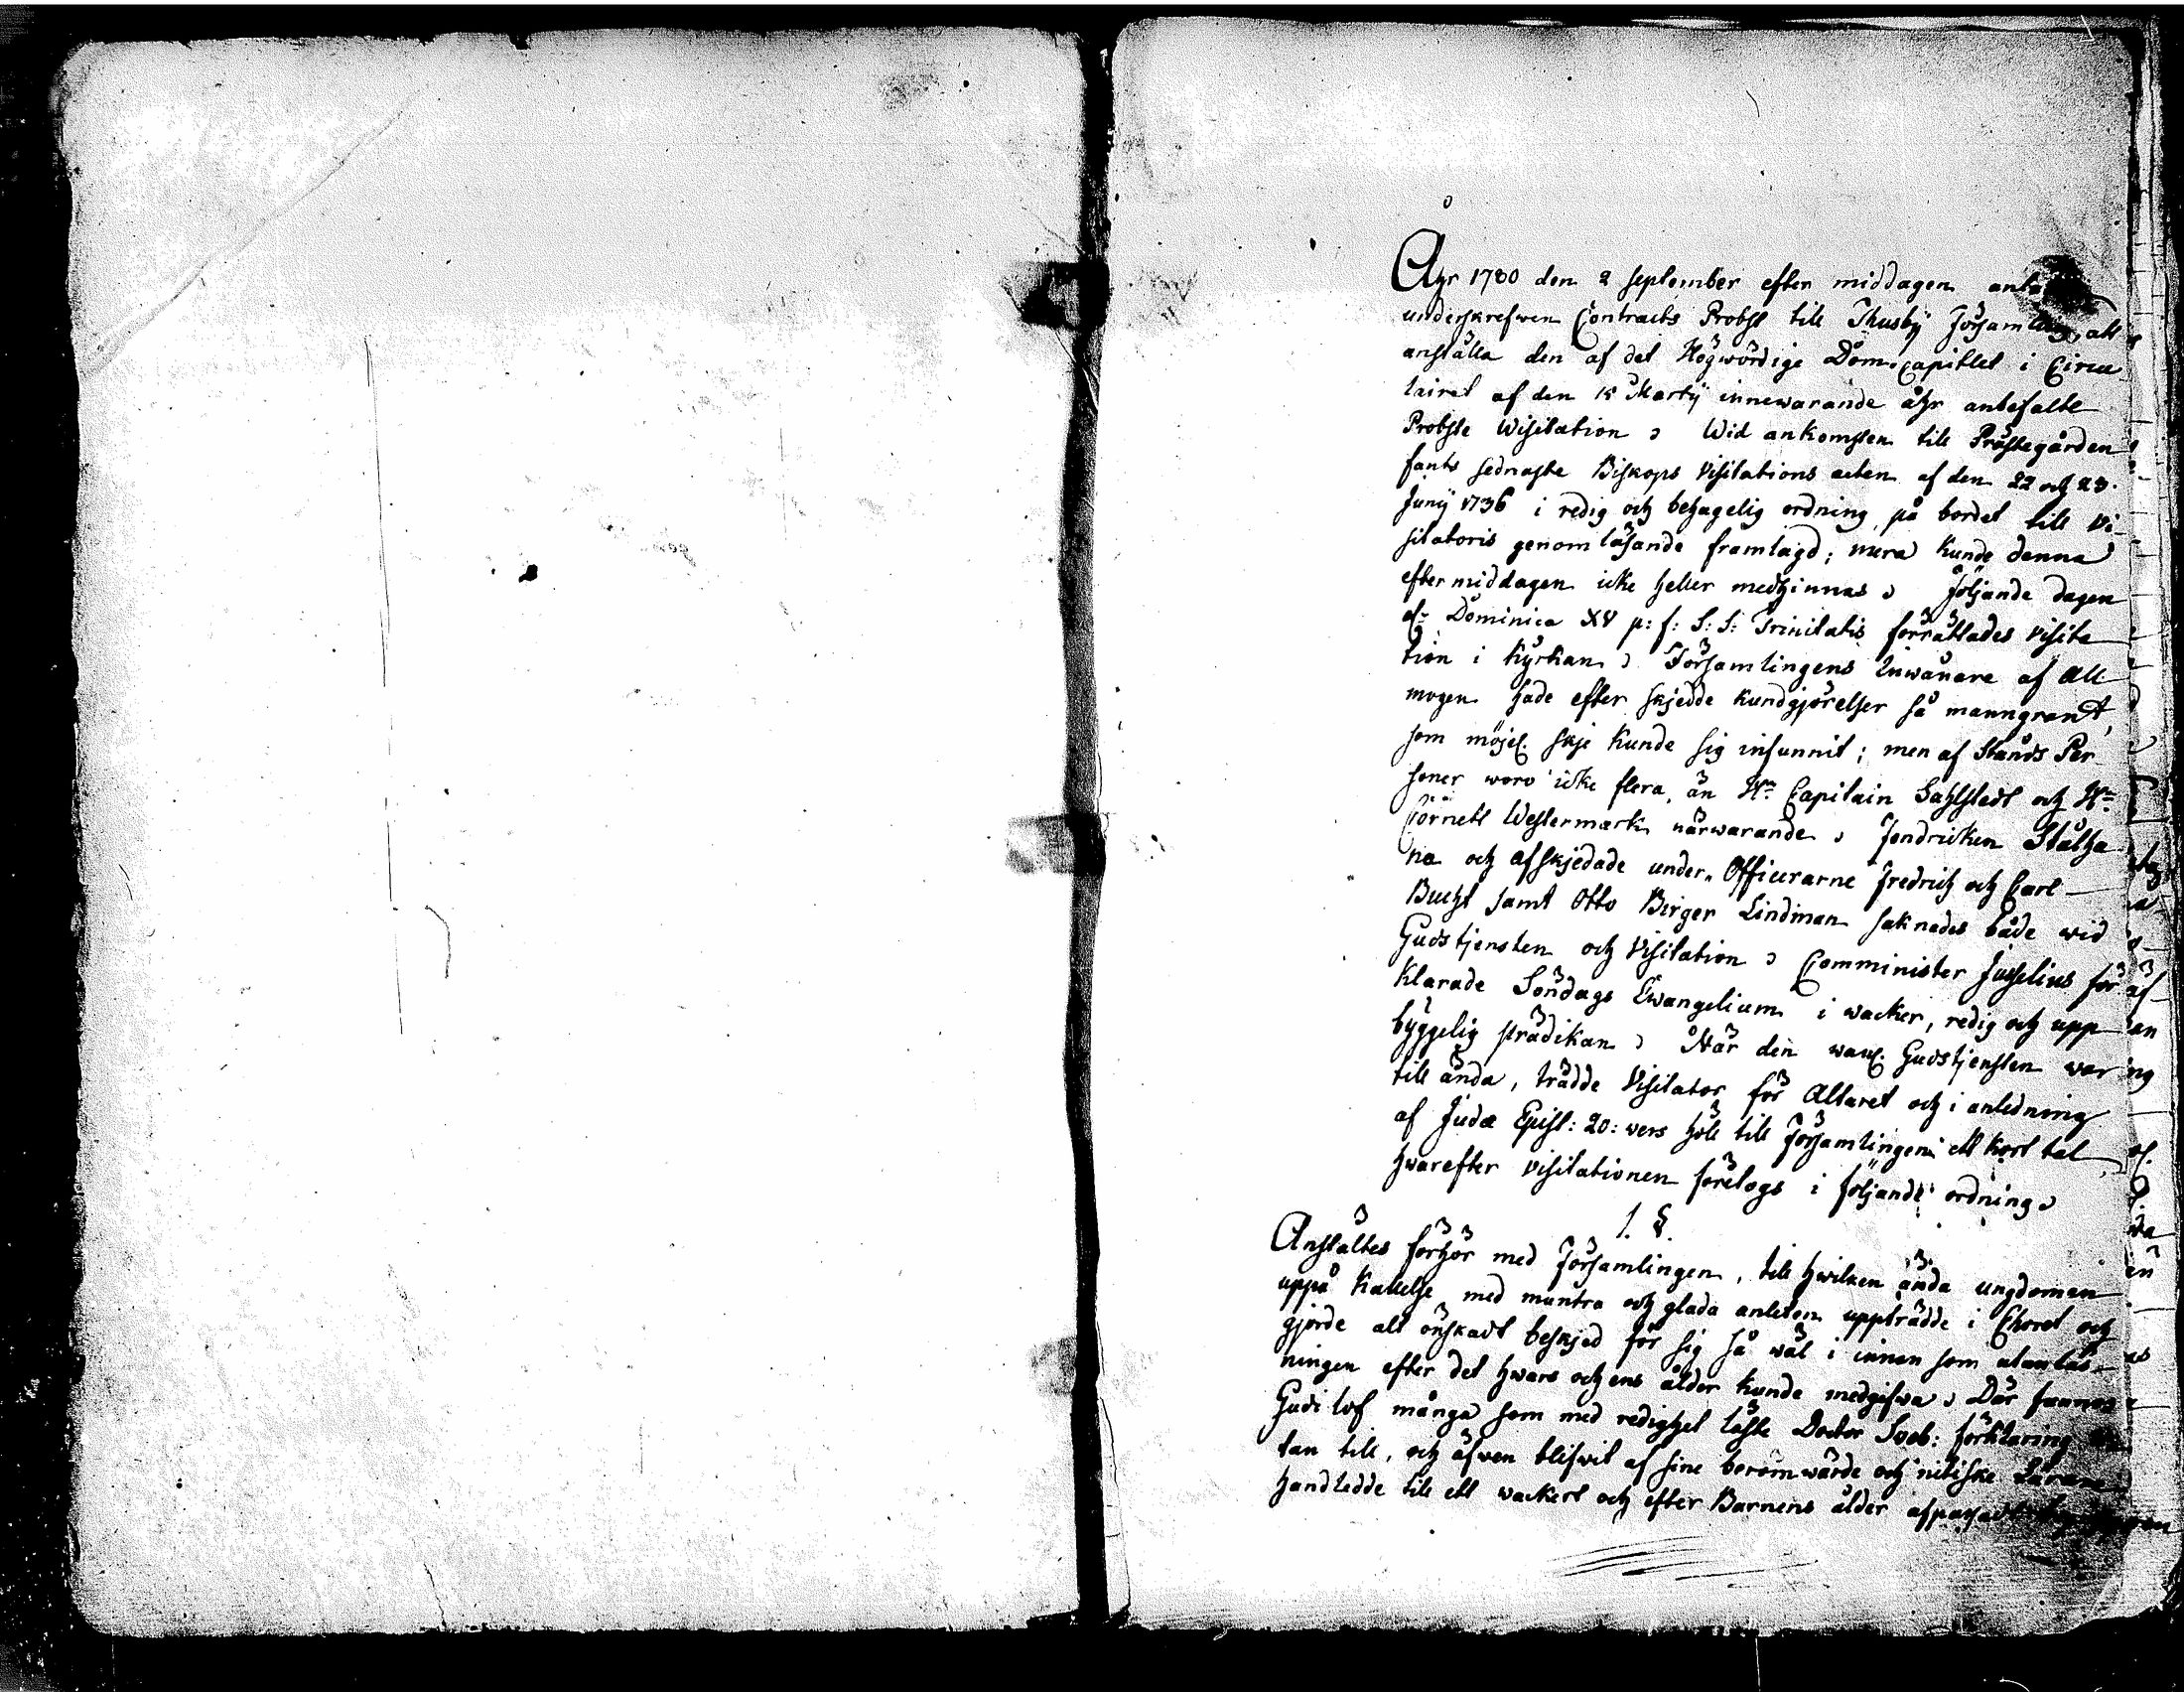 Åhr 1780 den 2 September efter middagen
underskrefwen Contracts Probst till Thusby Församling, att
anställa den af det Högwördige Dom-Capitlet i Circu
lairet af den 15 Martij innewarande åhr anbefalte
Probste Wisitation. Wid ankomsten till Prästegården
fants sednaste Biskops Visitations acten af den 22 och 23.
Junij 1736 i redig och behagelig ordning på bordet till Vi-
sitatoris genomläsande framlagd; mera kunde denna
eftermiddagen icke heller medhinnas. Följande dagen
d: Dominica XV p: f: S: S: Trinitatis förrättades visita
tion i Kyrkan. Församlingens Inwånare af All
mogen hade efter skjedde kundgjörelser så manngrant,
som möjel. skje kunde sig infunnit; men af Stånds Per
soner woro icke flera, än Hr Capitain Sahlstedt och Hr
Cornett Westermark närwarande. Fendricken Stålha
na och afskjedade under-Officerarne Fredrich och Carl
Bucht samt Otto Birger Lindman saknades både wid
Gudstjensten och Visitation. Comminister Jusselius för
klarade Söndags Ewangelium i wacker, redig och upp
byggelig prädikan. När den wanl. Gudstjensten war
till ända, trädde Visitator för Altaret och i anledning
af Judæ Epist: 20: vers höll till Församlingen ett kort tal
hwarefter visitationen företogs i följande ordning.
1. §.
Anstältes förhör med Församlingen, till hwilken ända ungdomen
uppå kallelse med muntra och glada anleten uppträdde i Choret och
gjorde alt önskadt beskjed för sig så wäl i innan som utanläs-
ningen efter det hwars och ens ålder kunde medgifwa. Där funnos
Gudi lof många som med redighet läste Doctor Sveb: förklaring
tan till, och äfwen blifwit af sine berömwärde och nitiske Lärare
handledde till ett wackert och efter Barnens ålder afpassadt